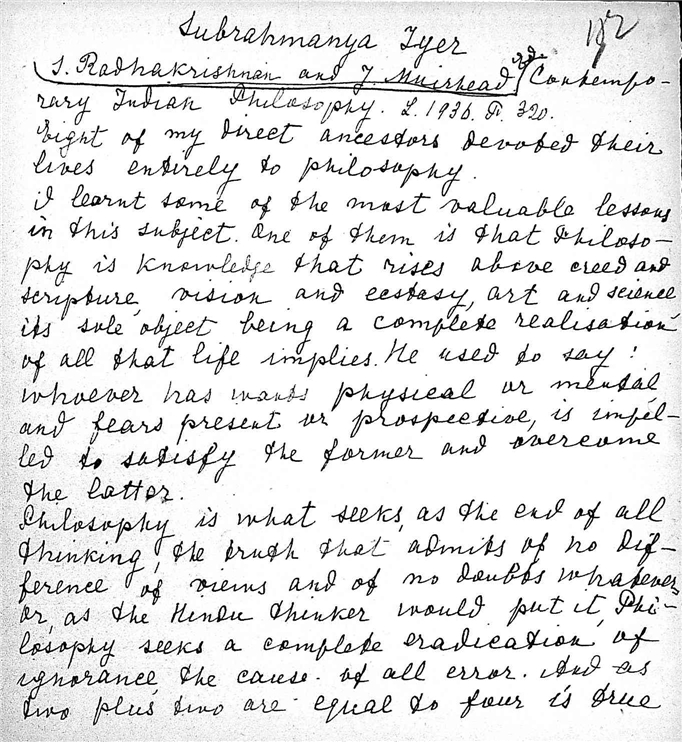 Subrahmanya Iyer
192
S. Radhakrishnan and J. Muirhead, ed. Contempo-
rary Indian Philosophy. L. 1936. P. 320.
Eight of my direct ancestors devoted their
lives entirely to philosophy.
I learnt some of the most valuable lessons
in this subject. One of them is that Philoso-
phy is knowledge that rises above creed and
scripture, vision and ecstasy, art and science
its sole object being a complete realisation
of all that life implies. He used to say:
whoever has wants physical or mental
and fears present or prospective, is impel-
led to satisfy the former and overcome
the latter.
Philosophy is what seeks, as the end of all
thinking, the truth that admits of no dif-
ference of views and of no doubts whatever,
or, as the Hindu thinker would put it, Phi-
losophy seeks a complete eradication of
ignorance, the cause of all error. And as
two plus two are equal to four is true